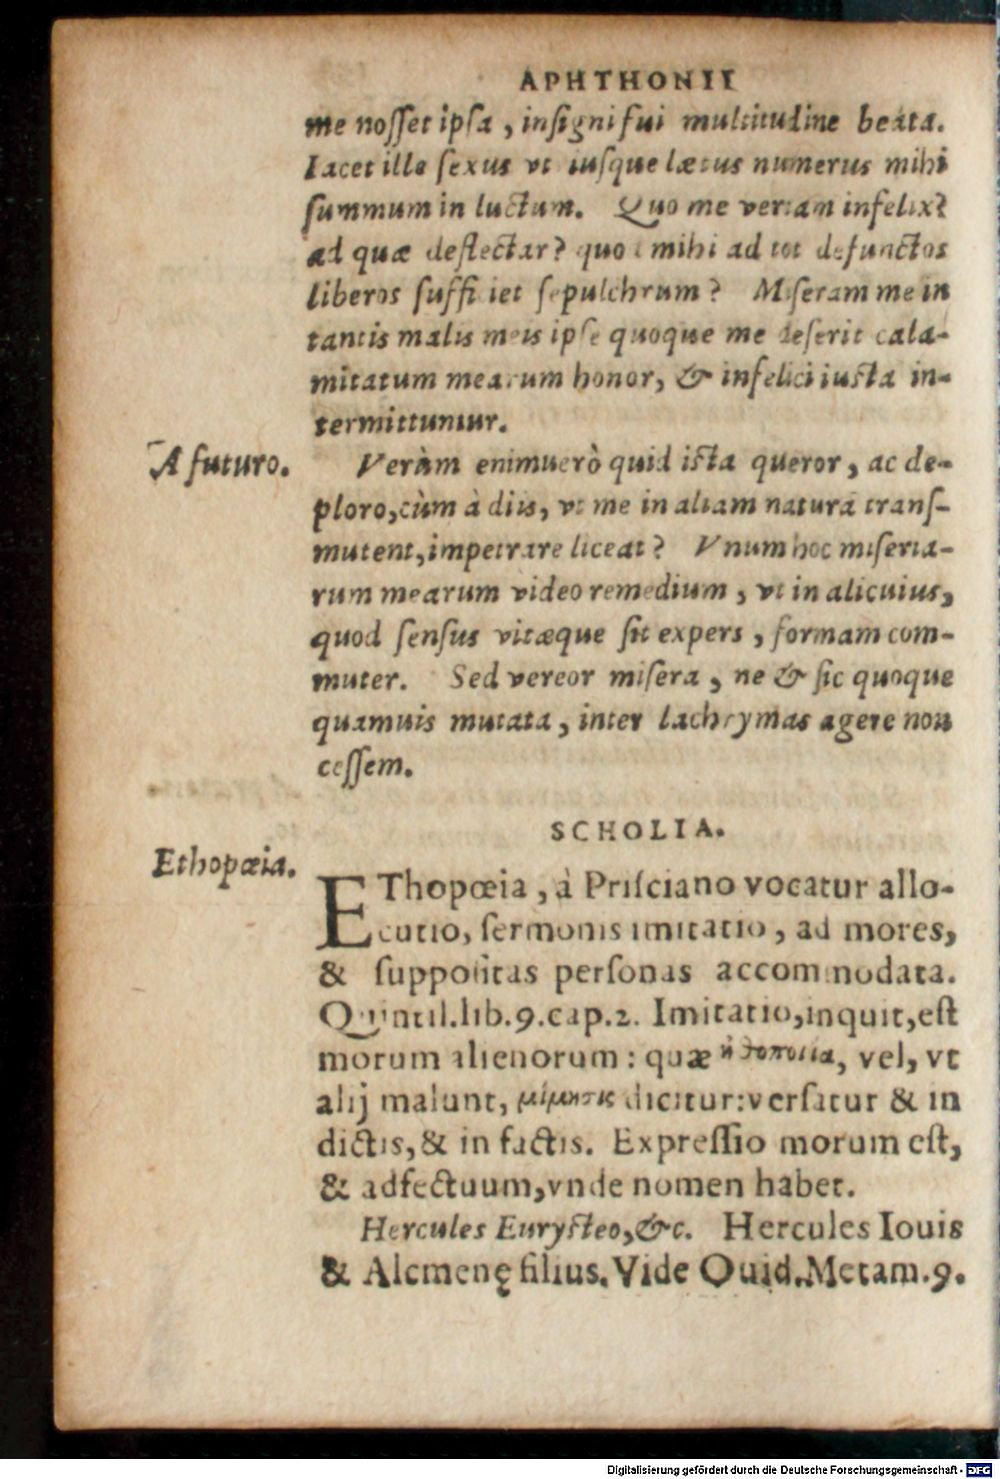 APHTHONII
me nosset ipsa, insigni fui multitudine beata.
Iacet ille sexus vt iusque lætus numerus mihi
summum in luctum. Quo me vertam infelix?
ad quæ deflectar? quod mihi ad tot defunctos
liberos sufficiet sepulchrum? Miseram me in
tantis malis meis ipse quoque me deserit cala-
mitatum mearum honor, & infelici iusta in-
termittuntur.
A futuro.
Verùm enimuerò quid ista queror, ac de-
ploro, cùm à diis, vt me in aliam naturā trans-
mutent, impetrare liceat? Vnum hoc miseria-
rum mearum video remedium, vt in alicuius,
quod sensus vitæque sit expers, formam com-
muter. Sed vereor misera, ne & sic quoque
quamuis mutata, inter lachrymas agere non
cessem.
SCHOLIA.
Ethopœia.
EThopœia, à Prisciano vocatur allo-
cutio, sermonis imitatio, ad mores,
& suppositas personas accommodata.
Quintil. lib. 9. cap. 2. Imitatio, inquit, est
morum alienorum: quæ ἠθοποιία, vel, vt
alij malunt, μίμησις dicitur: versatur & in
dictis, & in factis. Expressio morum est,
& adfectuum, vnde nomen habet.
Hercules Eurysteo, &c. Hercules Iouis
& Alcmenę filius. Vide Ouid. Metam. 9.
Digitalisierung gefördert durch die Deutsche Forschungsgemeinschaft - DFG